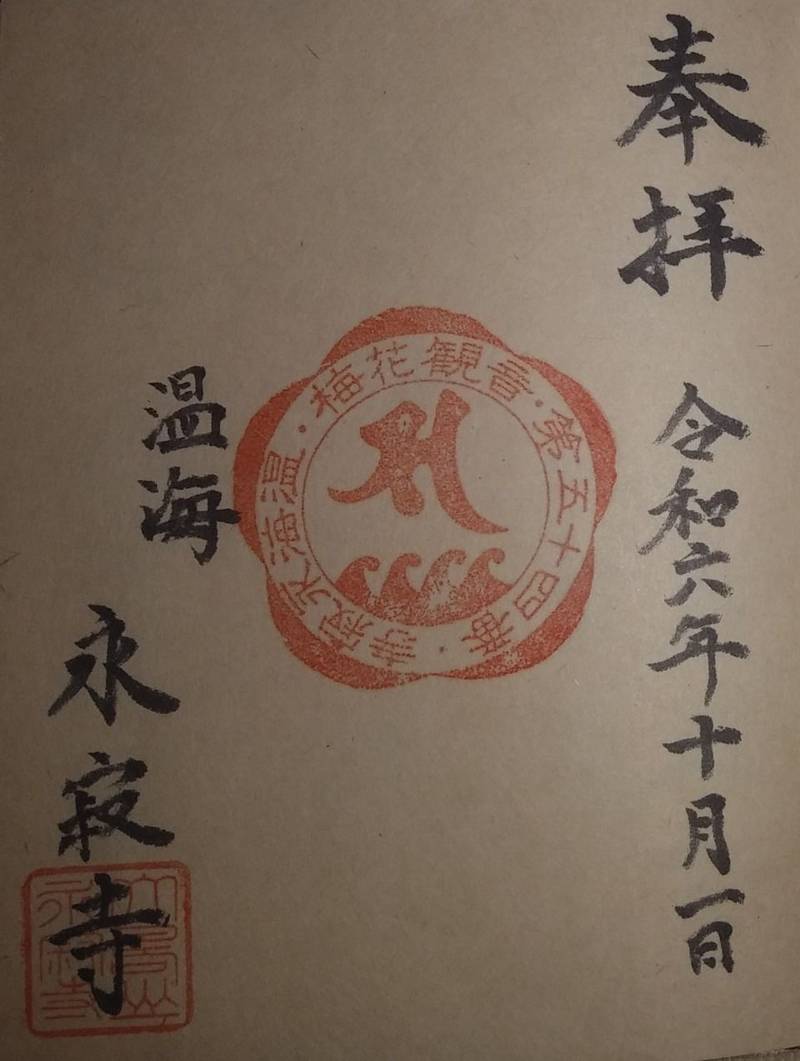 奉拝
令和六年十月一日
・梅花観音・第五十四番・
温海永寂寺
温海
永寂寺